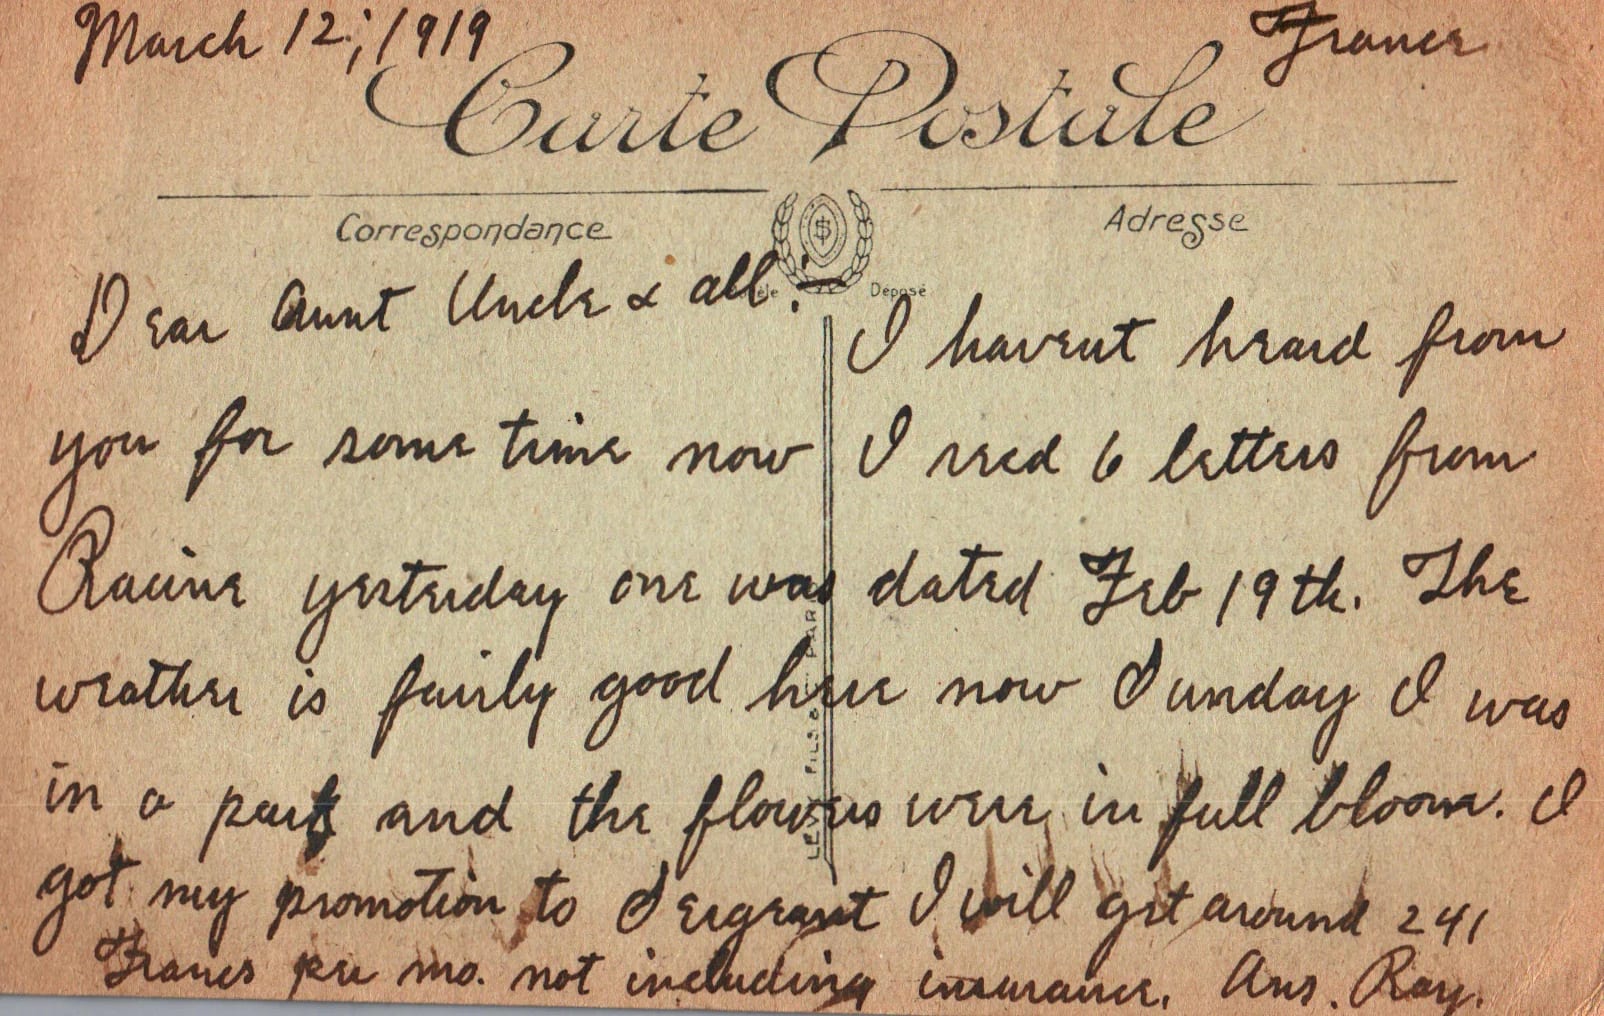 March 12, 1919 France
Carte Postale
Correspondance
Adresse
Déposé
Dear Aunt Uncle & all:— I havent heard from
you for some time now I recd 6 letters from
Racine yesterday one was dated Feb 19th. The
weather is fairly good here now Sunday I was
in a park and the flowers were in full bloom. I
got my promotion to Sergeant I will get around 241
Francs per mo. not including insurance. Ans. Ray.